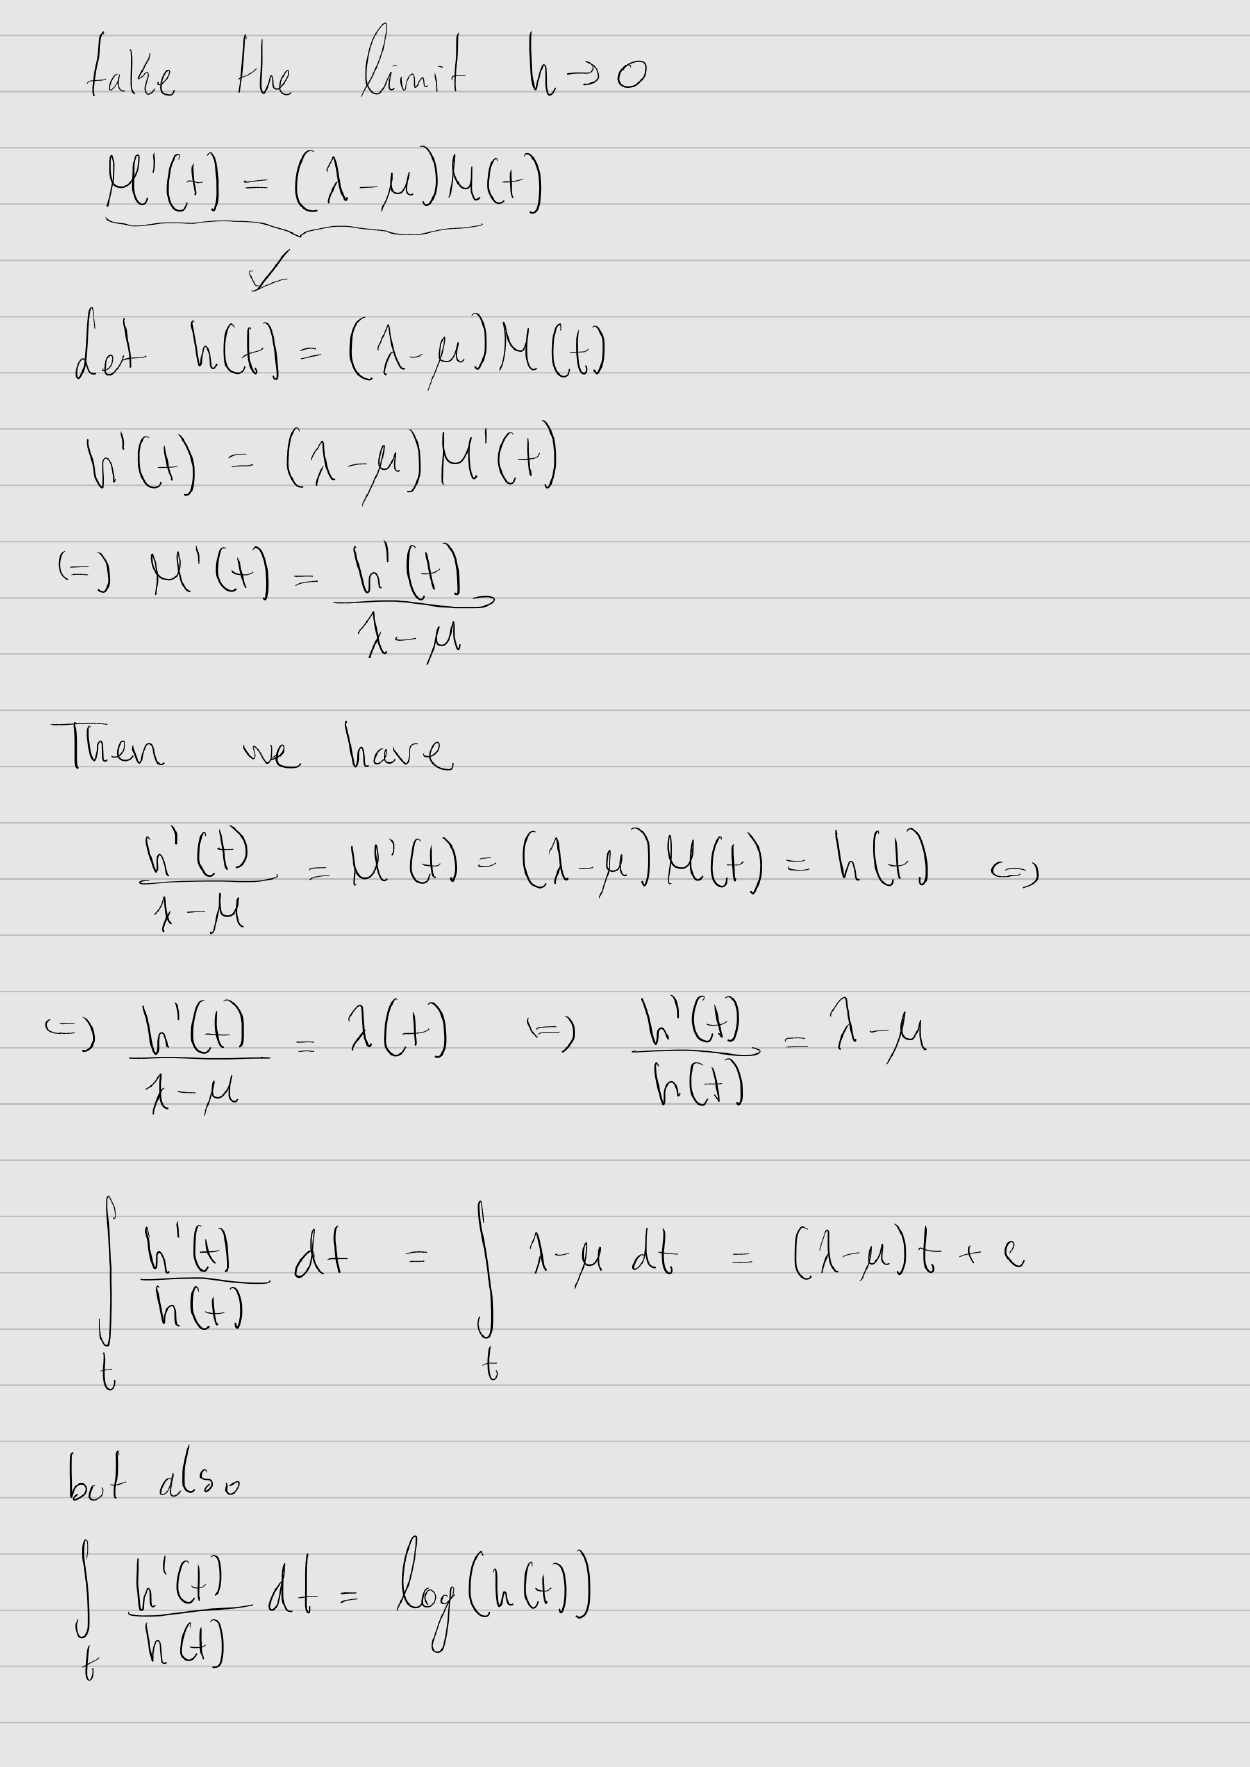 take the limit h→0
M'(t) = (λ-μ)M(t)
Let h(t) = (λ-μ)M(t)
h'(t) = (λ-μ)M'(t)
(=) M'(t) = h'(t) / λ-μ
Then we have
h'(t) / λ-μ = M'(t) = (λ-μ)M(t) = h(t) (=)
(=) h'(t) / λ-μ = λ(t) (=) h'(t) / h(t) = λ-μ
∫_t h'(t) / h(t) dt = ∫_t λ-μ dt = (λ-μ)t + c
but also
∫_t h'(t) / h(t) dt = log(h(t))